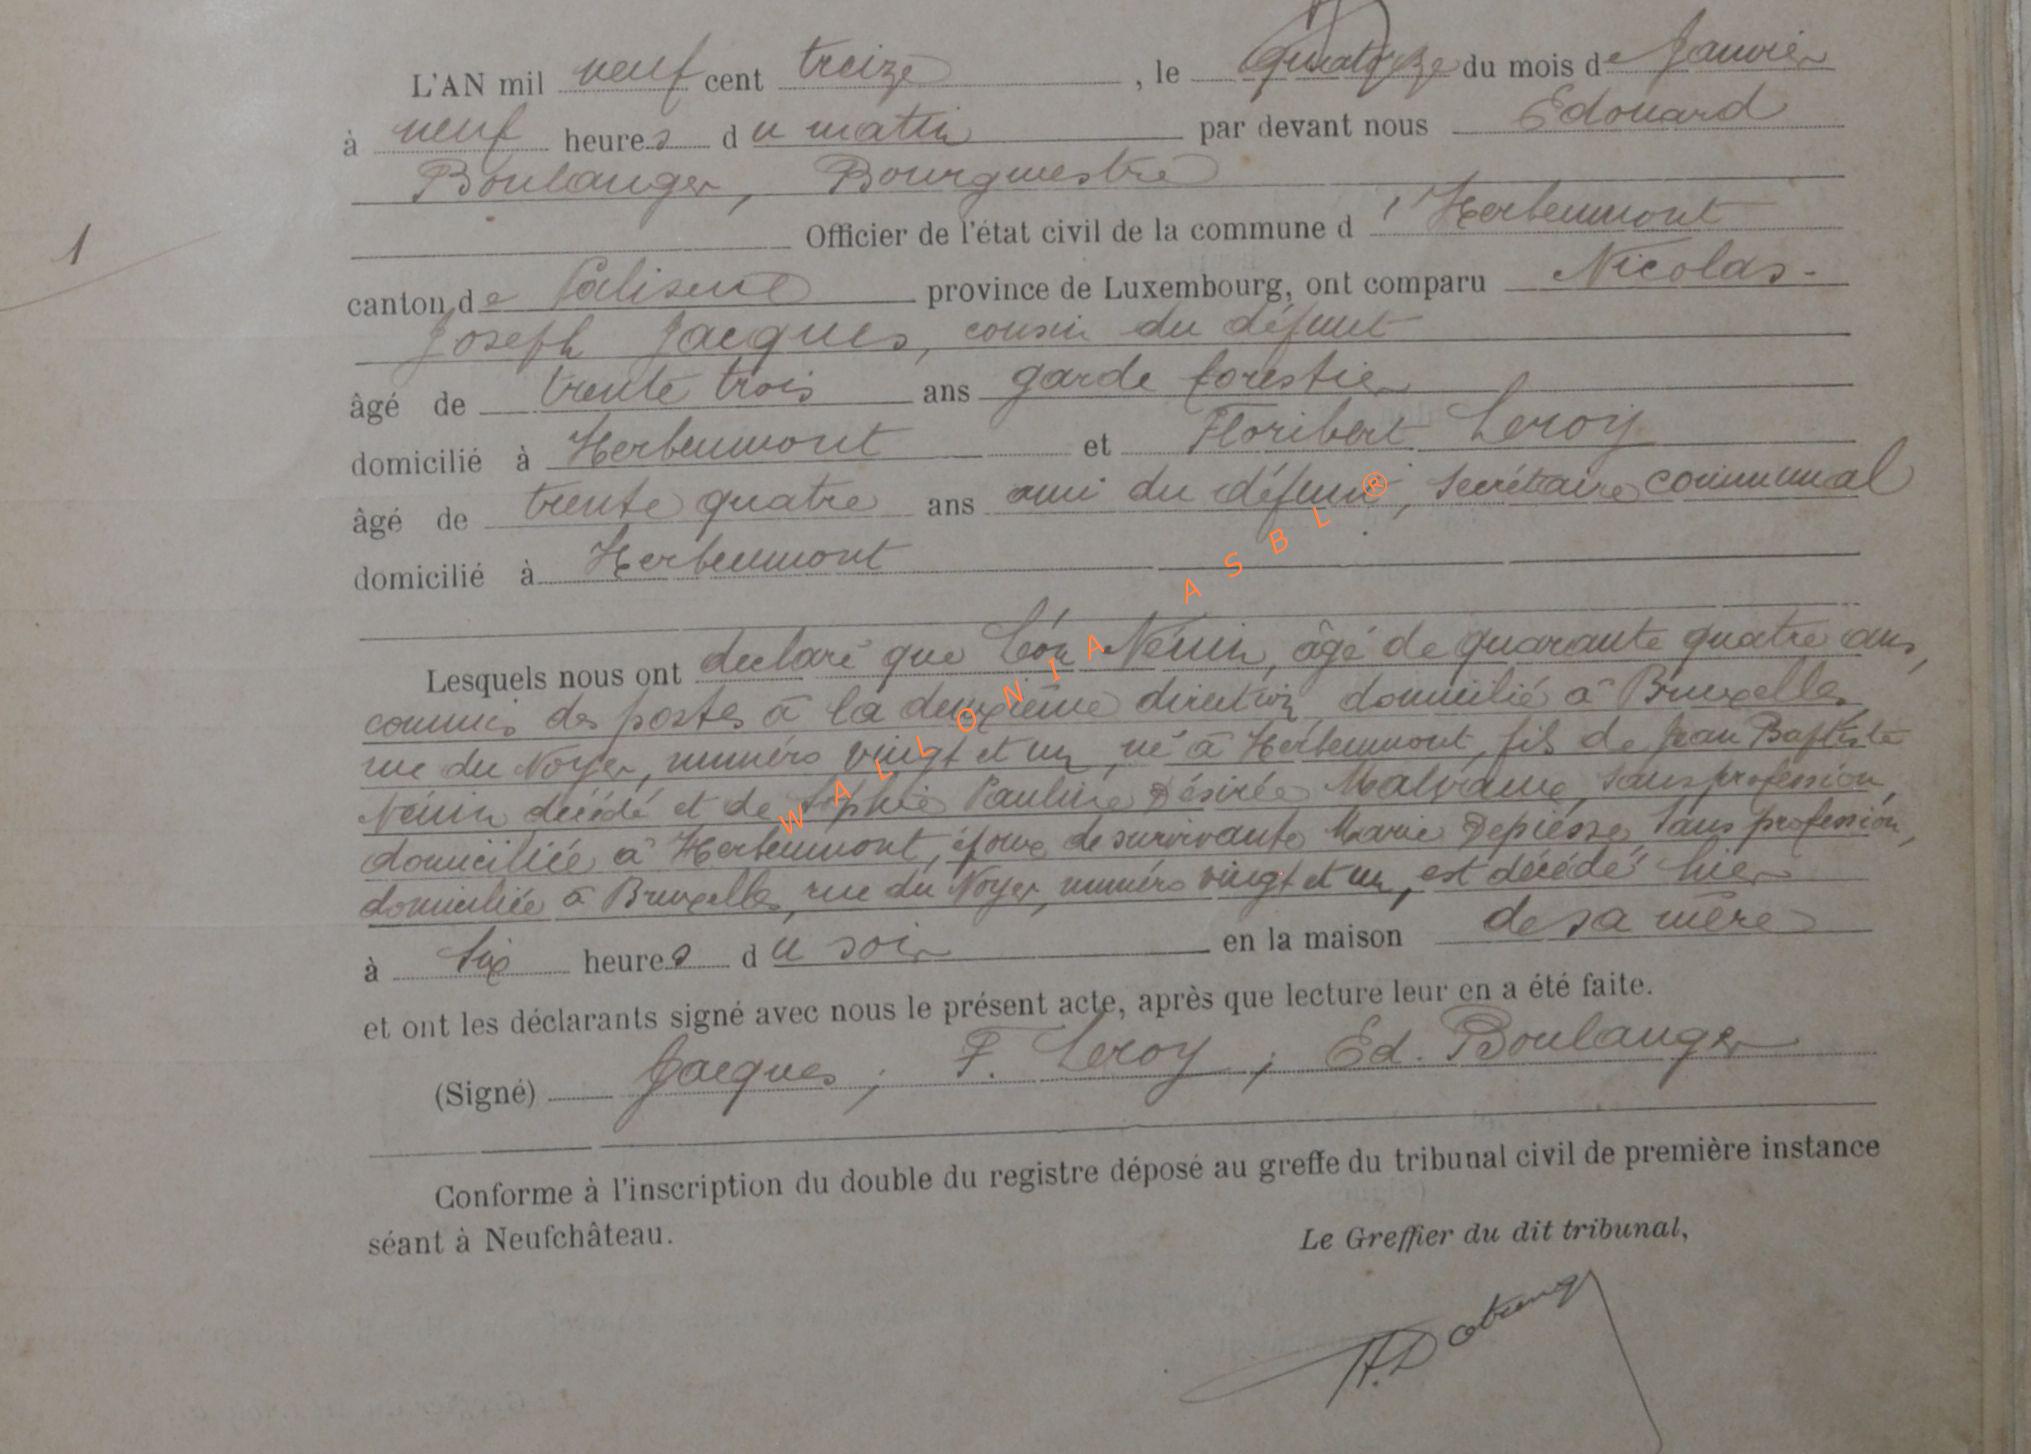 L'AN mil neuf cent treize, le quatorze du mois de Janvier
à neuf heures du matin par devant nous Edouard
Boulanger, Bourgmestre
1
Officier de l'état civil de la commune d'Herbeumont
canton de Paliseul province de Luxembourg, ont comparu Nicolas-
Joseph Jacques, cousin du défunt
âgé de trente trois ans garde forestier
domicilié à Herbeumont et Floribert Leroy
âgé de trente quatre ans ami du défunt, secrétaire communal
domicilié à Herbeumont
Lesquels nous ont declaré que Léon Nénin, âgé de quarante quatre ans,
commis des postes à la deuxième direction domicilié à Bruxelles,
rue du Noyer, numéro vingt et un, né à Herbeumont, fils de Jean Baptiste
Nénin décédé et de Sophie Pauline Désirée Malvaux, sans profession,
domiciliée à Herbeumont, époux de survivante Marie Depiesse, sans profession,
domiciliée à Bruxelles, rue du Noyer, numéro vingt et un, est décédé hier
à six heures du soir en la maison de sa mère
et ont les déclarants signé avec nous le présent acte, après que lecture leur en a été faite.
(Signé) Jacques; F. Leroy; Ed. Boulanger
Conforme à l'inscription du double du registre déposé au greffe du tribunal civil de première instance
séant à Neufchâteau.
Le Greffier du dit tribunal,
WALLONIA ASBL ®